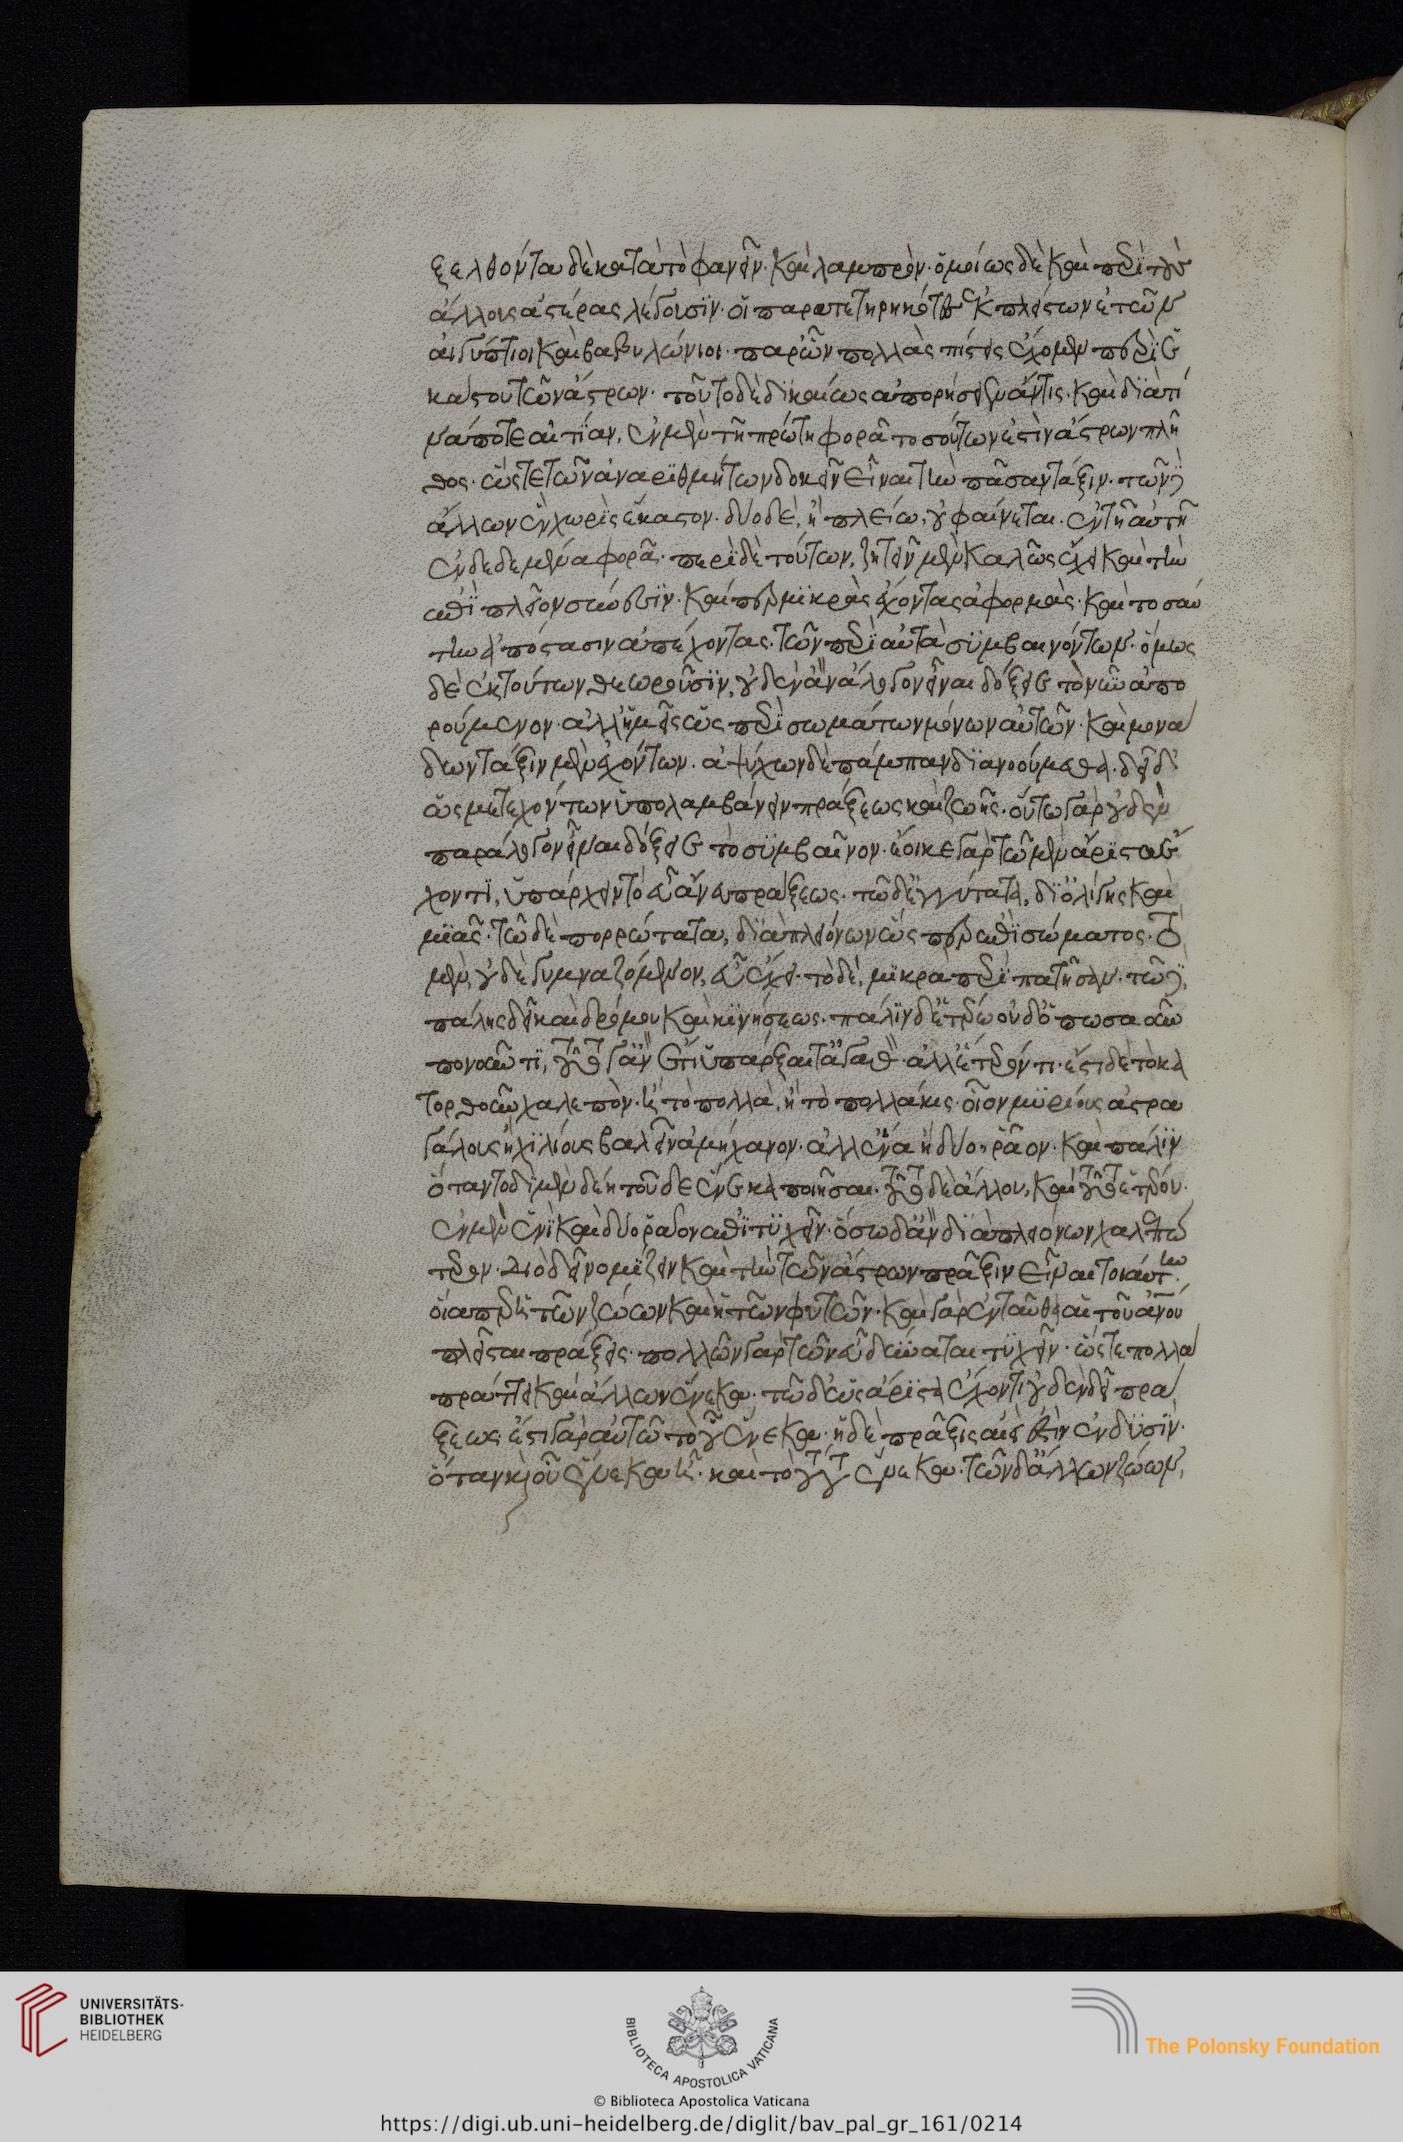 ξελθόνταυ δὲ κατὰ τὸ φανεῖν· καὶ λαμπρόν· ὁμοίως δὲ καὶ περὶ τοὺς
ἄλλους ἀστέρας λέγουσϊν· οἱ παρατετηρηκότες ἐκ πλείστων ἐτῶν
αἰγύπτιοι καὶ βαβυλώνιοι· παρ' ὧν πολλὰς πίστεις ἔχομεν περὶ ἑ
κάστου τῶν ἄστρων· τοῦτο δὲ δικαίως ἀπορήσειεν ἄντις· καὶ διὰ τί
να ποτε αἰτίαν, ἐν μὲν τῆ πρώτη φορᾶ τοσούτων ἐστὶν ἄστρων πλῆ
θος· ὥστε τῶν ἀναριθμήτων δοκεῖν εἶναι τὴν πᾶσαν τάξιν· τῶν δ'
ἄλλων ἓν χωρὶς ἕκαστον· δύο δὲ, ἢ πλείω, οὐ φαίνεται· ἐν τῆ αὐτῆ
ἐνδεδεμένα φορᾶ· περὶ δὲ τούτων, ζητεῖν μὲν καλῶς ἔχει καὶ τὴν
ἐπὶ πλεῖον σύνεσιν· καίπερ μικρὰς ἔχοντας ἀφορμὰς· καὶ τοσαύ
την ἀπόστασιν ἀπέχοντας· τῶν περὶ αὐτὰ συμβαινόντων· ὅμως
δὲ ἐκ τούτων θεωροῦσϊν, οὐδὲν ἂν ἄλογον εἶναι δόξειε τὸ νῦν ἀπο
ρούμενον· ἀλλ' ἡμεῖς ὡς περὶ σωμάτων μόνων αὐτῶν· καὶ μονά
δων τάξιν μὲν ἐχόντων· ἀψύχων δὲ πάμπαν διανοούμεθα· δεῖ δ'
ὡς μετεχόντων ὑπολαμβάνειν πράξεως καὶ ζωῆς· οὕτω γὰρ οὐδὲν
παράλογον εἶναι δόξειε τὸ συμβαῖνον· ἔοικε γὰρ τῶ μὲν ἄριστα ἔ
χοντϊ, ὑπάρχειν τὸ εὖ ἄνευ πράξεως· τῶ δὲ ἐγγύτατα, δι' ὀλίγης καὶ
μϊᾶς· τῶ δὲ πορρώτατω, διὰ πλειόνων ὥσπερ ἐπὶ σώματος· τὸ
μὲν, οὐδὲ γυμναζόμενον, εὖ ἔχει· τὸ δὲ, μικρὰ περιπατῆσαν· τῶ δὲ,
πάλης δεῖ καὶ δρόμου καὶ κινήσεως· πάλϊν δὲ ἑτέρω οὐδ' ὁπωσαοῦν
πονοῦντϊ, τοῦτο γ' ἂν ἔτι ὑπάρξαι τἀγαθόν· ἀλλ' ἕτερόν τι· ἔστι δὲ τὸ κα
τορθοῦν χαλεπὸν· ἢ τὸ πολλὰ, ἢ τὸ πολλάκις· οἷον μυρίους ἀστρα
γάλους ἢ χϊλίους βαλεῖν ἀμήχανον· ἀλλ' ἕνα ἢ δύο, ρᾶον· καὶ πάλϊν
ὅταν τοδὶ μὲν δέη τοῦδε ἕνεκα ποιῆσαι· τοῦτο δὲ ἄλλου, καὶ τοῦτο ἑτέρου·
ἐν μὲν ἑνὶ καὶ δύο ρᾶον ἐπιτυχεῖν· ὅσω δ' ἂν διὰ πλειόνων χαλεπώ
τερον· διὸ δεῖ νομίζειν καὶ τὴν τῶν ἄστρων πρᾶξιν εἶναι τοιαύτην·
οἵαπερ ἡ τῶν ζώων καὶ ἡ τῶν φυτῶν· καὶ γὰρ ἐνταῦθα αἱ τοῦ ἀνου
πλεῖσται πράξεις· πολλῶν γὰρ τῶν εὖ δύναται τυχεῖν· ὥστε πολλὰ
πράττει καὶ ἄλλων ἕνεκα· τῶ δ' ὡς ἄριστα ἔχοντι οὐδὲν δεῖ πρά
ξεως· ἔστι γὰρ αὐτῶ τὸ οὗ ἕνεκα· ἡ δὲ πρᾶξις ἀεί ἐστιν ἐν δυσϊν·
ὅταν καὶ οὗ ἕνεκα ᾖ· καὶ τὸ τούτου ἕνεκα· τῶν δ' ἄλλων ζώων,
UNIVERSITÄTS-
BIBLIOTHEK
HEIDELBERG
BIBLIOTECA APOSTOLICA VATICANA
The Polonsky Foundation
© Biblioteca Apostolica Vaticana
https://digi.ub.uni-heidelberg.de/diglit/bav_pal_gr_161/0214